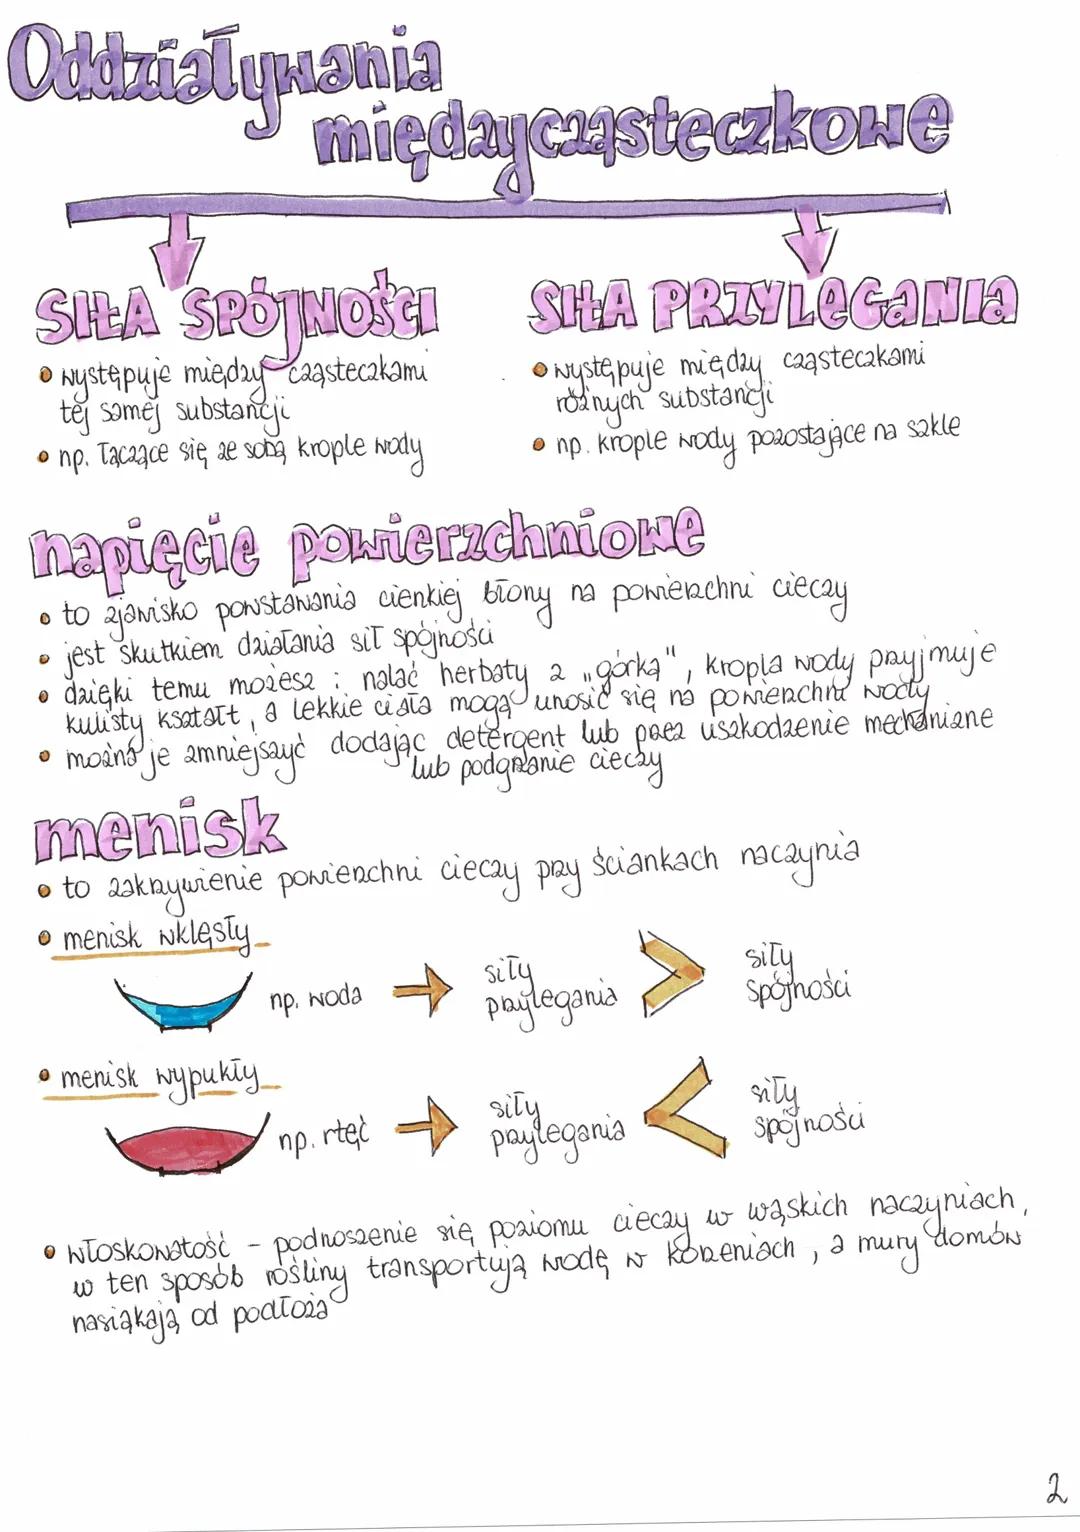 Oddziaływania
międzycząsteczkowe
SIŁA SPÓJNOŚCI
• występuje między cząsteczkami
tej samej substancji
• np. łączące się ze sobą krople wody
SIŁA PRZYLEGANIA
• występuje między cząsteczkami
różnych substancji
• np. krople wody pozostające na szkle
napięcie powierzchniowe
• to zjawisko powstawania cienkiej błony na powierzchni cieczy
• jest skutkiem działania sił spójności
• dzięki temu możesz : nalać herbaty z „górką", kropla wody przyjmuje
kulisty kształt, a lekkie ciała mogą unosić się na powierzchni wody
• można je zmniejszyć dodając detergent lub przez uszkodzenie mechaniczne
lub podgrzanie cieczy
menisk
• to zakrzywienie powierzchni cieczy przy ściankach naczynia
• menisk wklęsły
np. woda → siły przylegania > siły spójności
• menisk wypukły
np. rtęć → siły przylegania < siły spójności
• włoskowatość - podnoszenie się poziomu cieczy w wąskich naczyniach,
w ten sposób rośliny transportują wodę w korzeniach, a mury domów
nasiąkają od podłoża
2